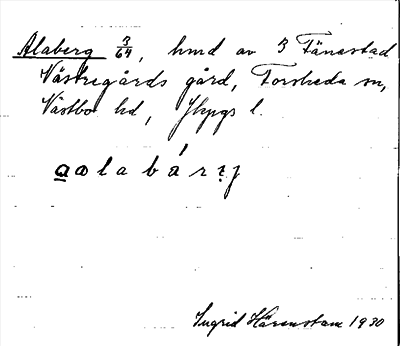 Alaberg 3/64, hmd av 3 Fänestad
Västregårds gård, Forsheda sn,
Västbo hd, Jkpgs l.
a͟olabárɪj
Ingrid Härenstam 1930